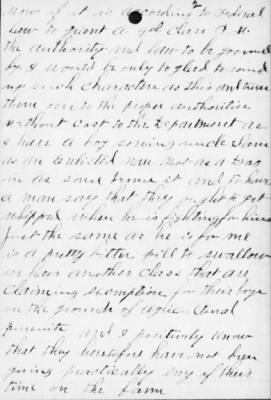 2
now if it is according to Federal
law to grant a
the authority and law to be governed
by I would be only to glad to round
up such characters as this and turn
them over to the proper authorities
without cost to the Department as
I have a boy serving uncle Sam
as an Enlisted man not as a
as some term it and to have
a man say that they ought to get
whipped when he is fighting for him
Just the same as he is for me
is a pretty bitter pill to swallow
we have another class that are
claiming exemption for their boys
on the grounds of agricultural
pursuits and I positively know
that they heretofore have not been
giving practically any of their
time on the farm